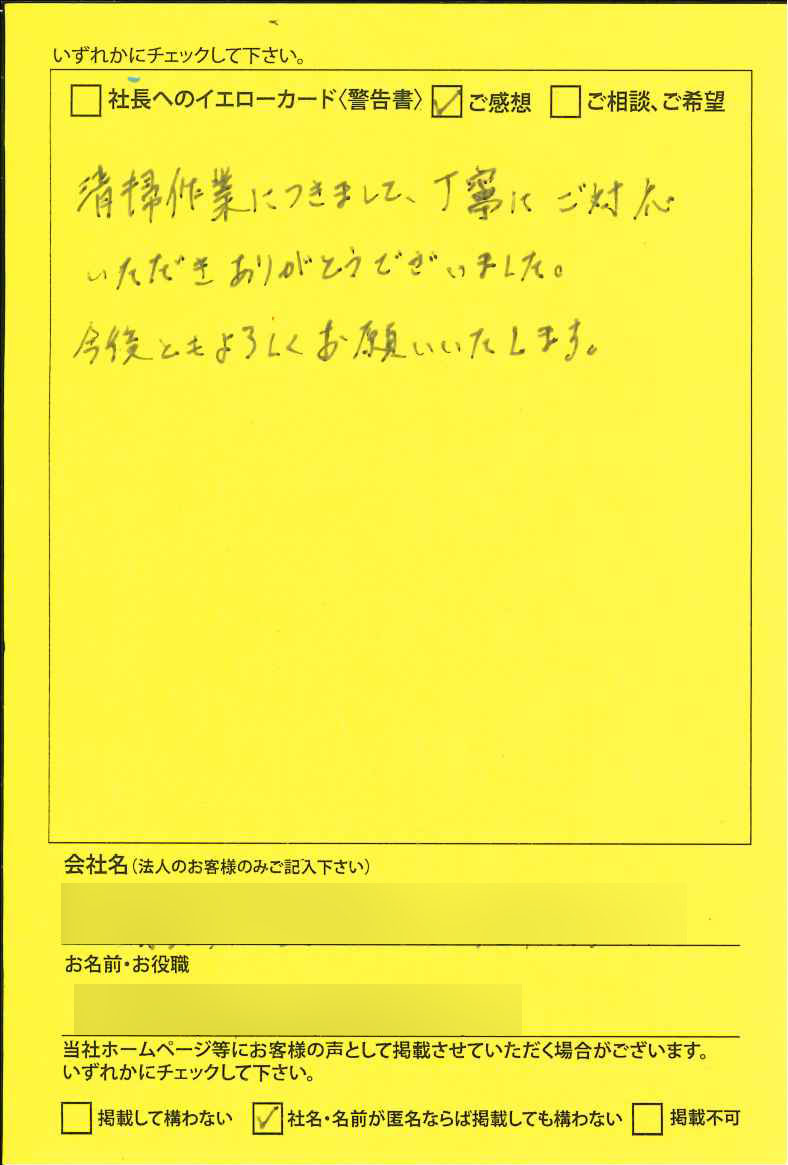 いずれかにチェックして下さい。
社長へのイエローカード〈警告書〉 ご感想 ご相談、ご希望
清掃作業につきまして、丁寧にご対応
いただきありがとうございました。
今後ともよろしくお願いいたします。
会社名(法人のお客様のみご記入下さい)
お名前・お役職
当社ホームページ等にお客様の声として掲載させていただく場合がございます。
いずれかにチェックして下さい。
掲載して構わない 社名・名前が匿名ならば掲載しても構わない 掲載不可